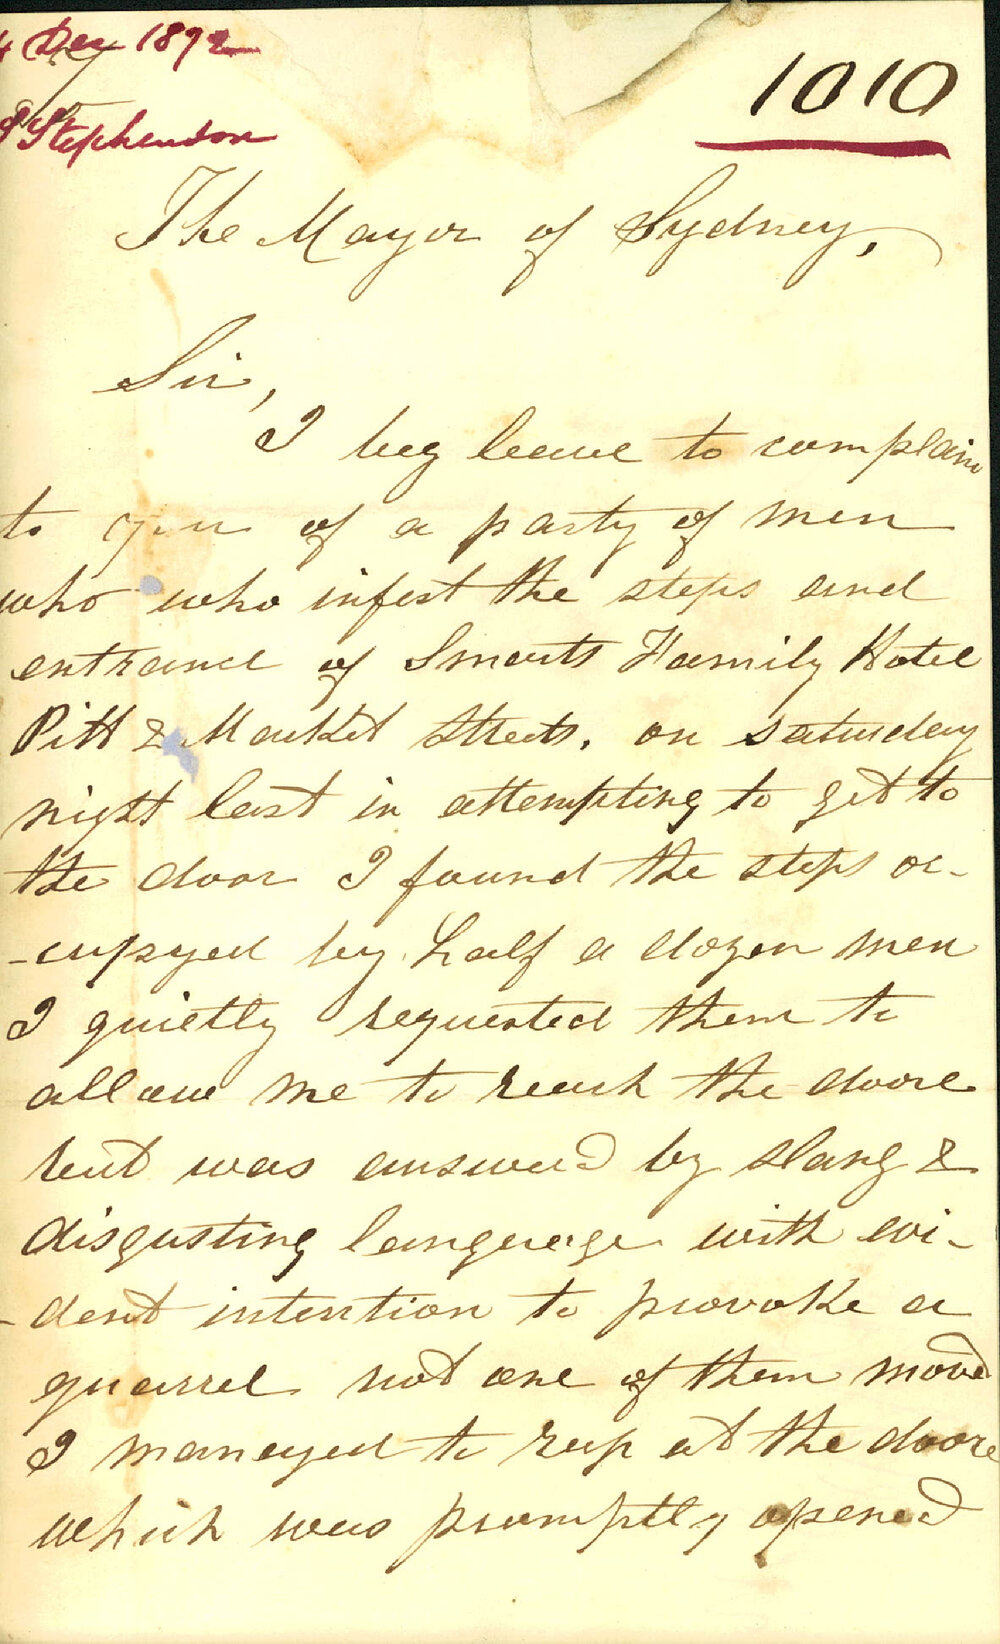 4 Dec 1872
1010
Stephenson
The Mayor of Sydney,
Sir,
I beg leave to complain
to you of a party of men
who who infest the steps and
entrance of Smarts Family Hotel
Pitt & Market Streets. on Saturday
night last in attempting to get to
the door I found the steps oc-
-cupyed by half a dozen men
I quietly requested them to
allow me to reach the doore
but was answered by slang &
disgusting language with evi-
-dent intention to provoke a
quarrel not one of them moved
I managed to rap at the doore
which was promptly opened